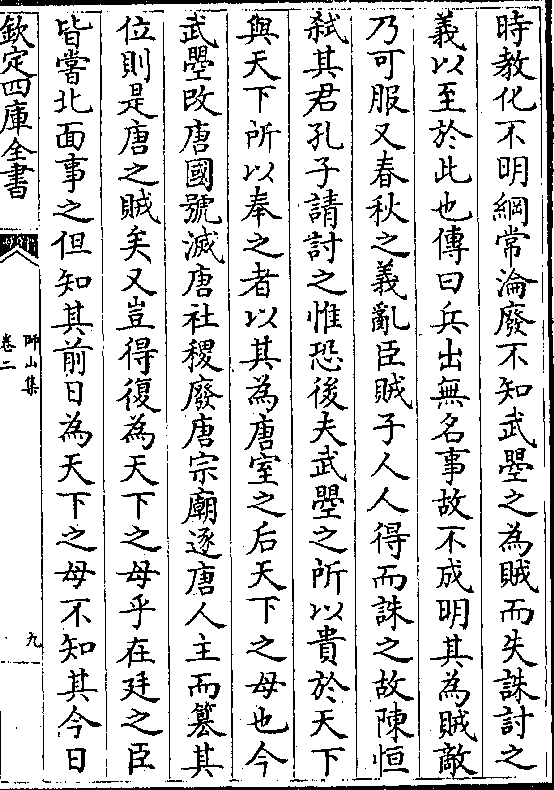 時教化不明綱常淪廢不知武曌之為賊而失誅討之
義以至於此也傳曰兵出無名事故不成明其為賊敵
乃可服又春秋之義亂臣賊子人人得而誅之故陳恒
弑其君孔子請討之惟恐後夫武曌之所以貴於天下
與天下所以奉之者以其為唐室之后天下之母也今
武曌改唐國號滅唐社稷廢唐宗廟逐唐人主而簒其
位則是唐之賊矣又豈得復為天下之母乎在廷之臣
皆嘗北面事之但知其前日為天下之母不知其今日
欽定四庫全書
師山集
卷二
九